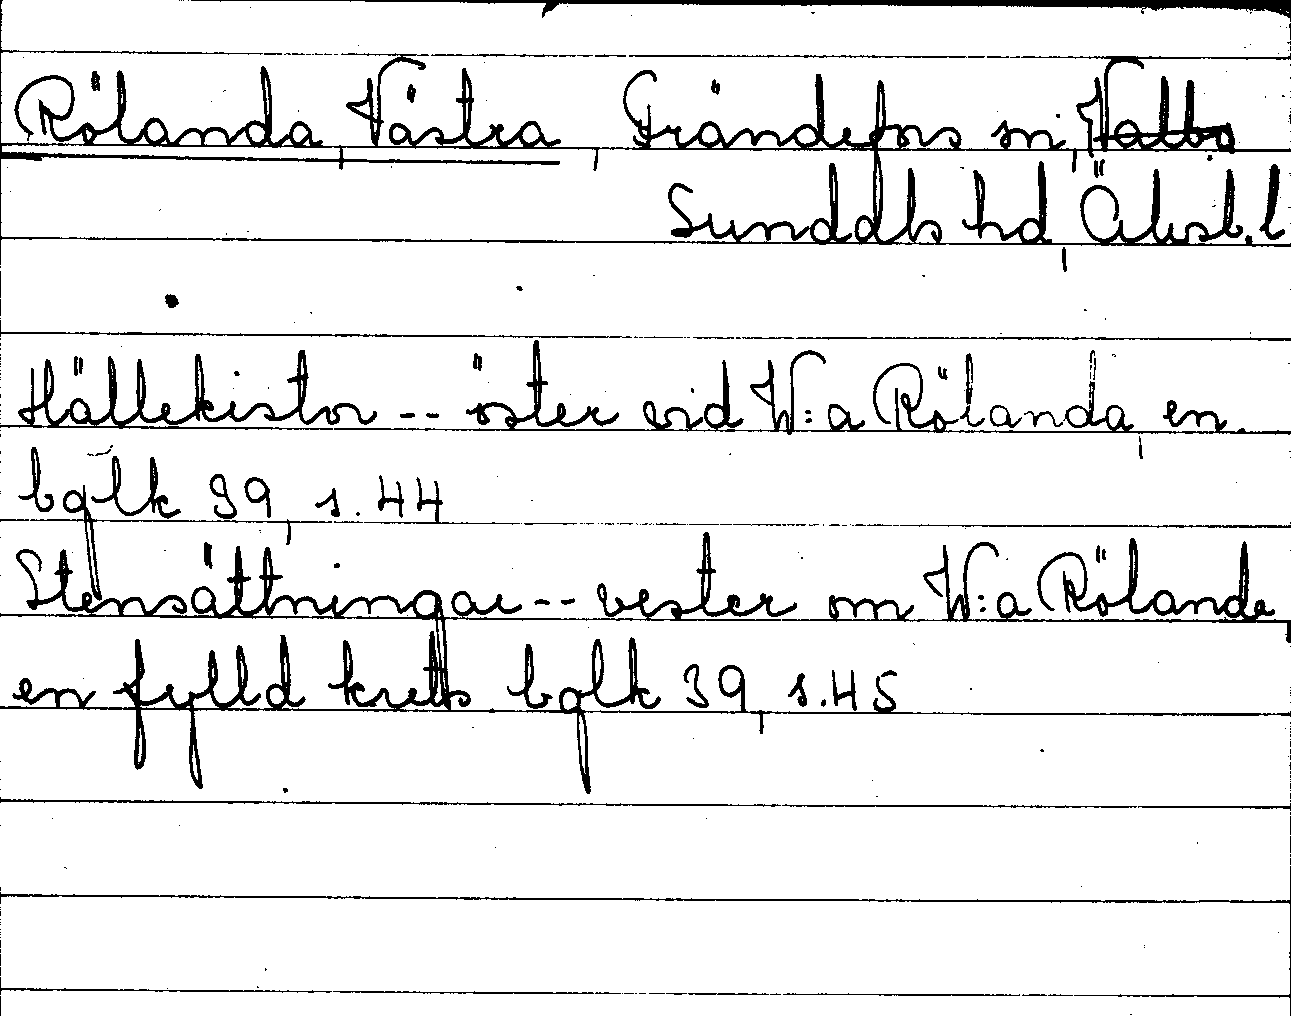 Rölanda, Västra, Frändefors sn, Valbo
Sunddls hd, Älvsb. l
Hällekistor -- öster vid W:a Rölanda, en.
bglk 39, s. 44
Stensättningar -- vester om W:a Rölanda,
en fylld krets. bglk 39, s. 45